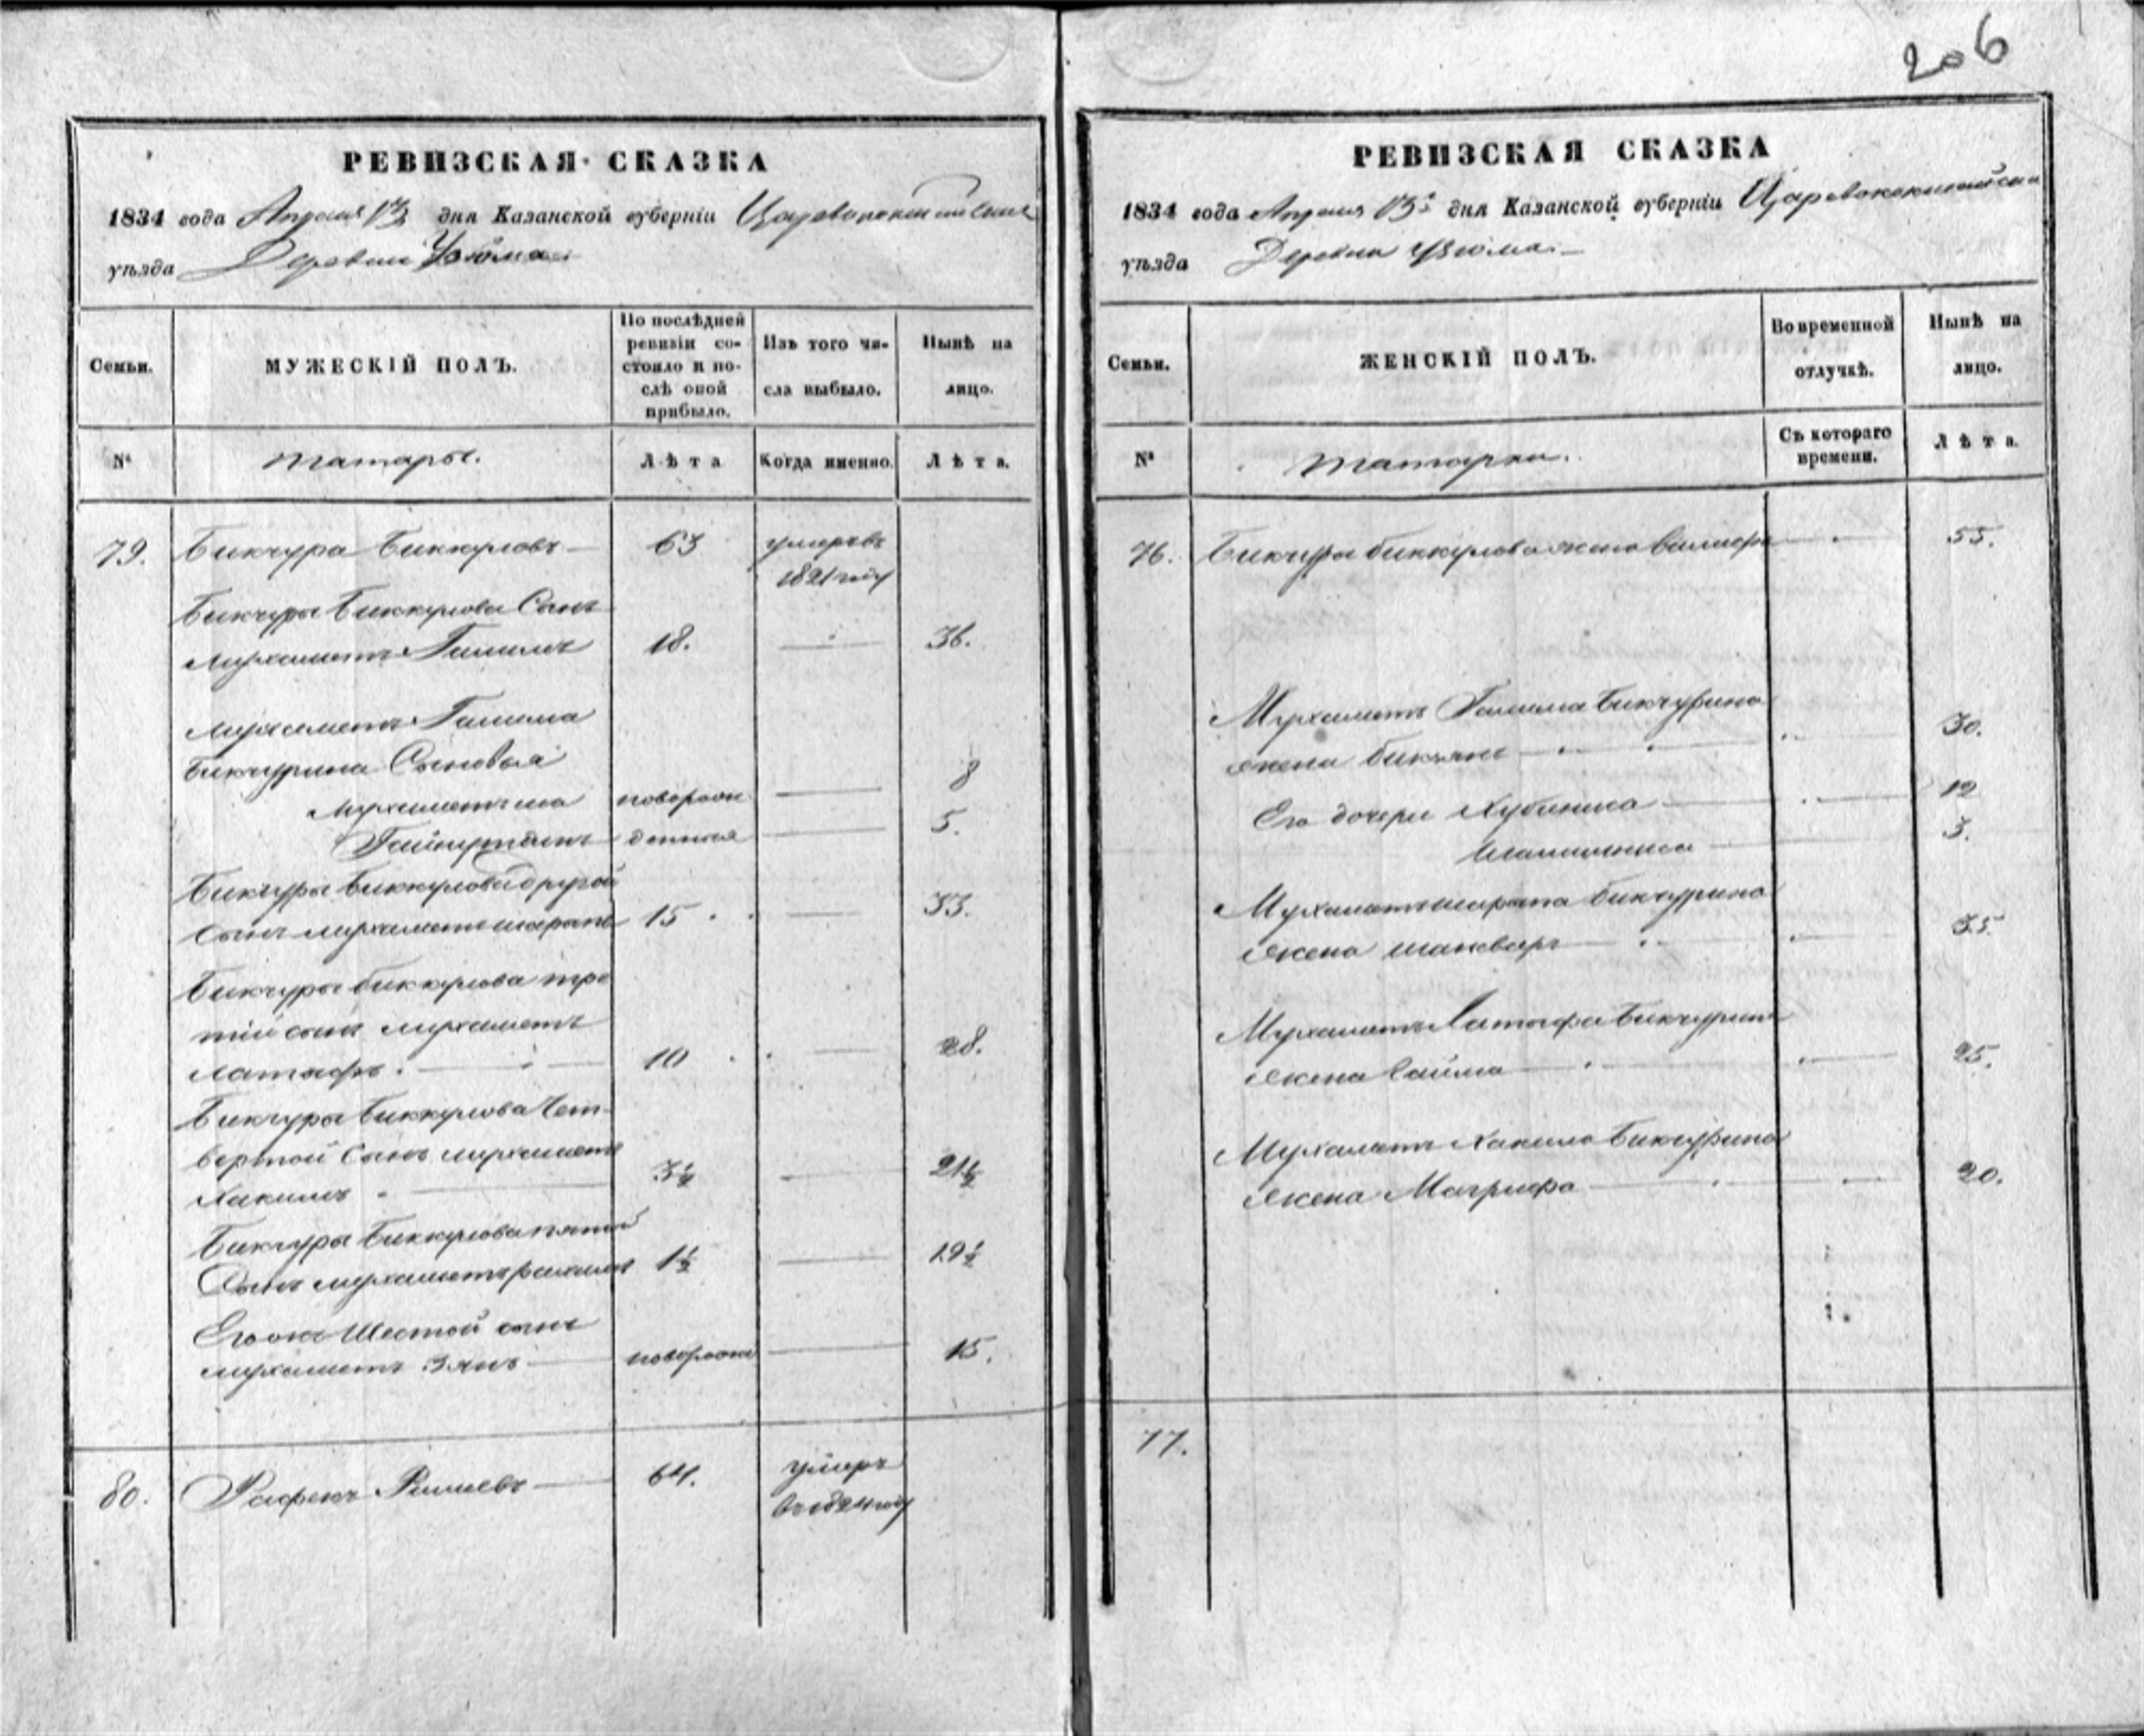 206
РЕВИЗСКАЯ СКАЗКА
1834 года Апреля 13 дня Казанской губерніи Царевококшайскаго
уѣзда Деревни
Семьи.
МУЖЕСКІЙ ПОЛЪ.
По послѣдней ревизіи состояло и послѣ оной прибыло.
Изъ того числа выбыло.
Нынѣ на лицо.
№
татары.
Лѣта
Когда именно.
Лѣта.
79. Бикчура Биккуловъ 63 умеръ въ
1821 году
Бикчуры Биккулова Сынъ
Мухаметъ Галимъ 18. 36.
Мухаметъ Галима
Бикчурина Сыновья
новорож 8
денныя 5.
Бикчуры Биккулова другой
Сынъ мухаметъ шарапъ 15 33.
Бикчуры биккулова тре
тій сынъ мухаметъ
латыфъ 10 28.
Бикчуры Биккулова Чет
вертой Сынъ мухаметъ
Хакимъ 3½ 21½
Бикчуры Биккулова пятой
Сынъ мухаметъ рахимъ 1½ 19½
Его онъ Шестой сынъ
мухаметъ Зянъ новорож 15.
80. Рафекъ 64. умеръ
въ 1824 году
РЕВИЗСКАЯ СКАЗКА
1834 года Апреля 13 дня Казанской губерніи Царевококшайска
уѣзда Деревни
Семьи.
ЖЕНСКІЙ ПОЛЪ.
Во временной отлучкѣ.
Нынѣ на лицо.
№
татарки.
Съ котораго времени.
Лѣта.
76. Бикчуры биккулова жена 55.
Мухаметъ Галима Бикчурина
жена бикъянъ 30.
Его дочери Хубиниса 12
3.
Мухаметъ шарапа бикчурина
жена 35.
Мухаметъ Латыфа Бикчурина
жена Сайма 25.
Мухаметъ Хакима Бикчурина
жена Магрифа 20.
77.